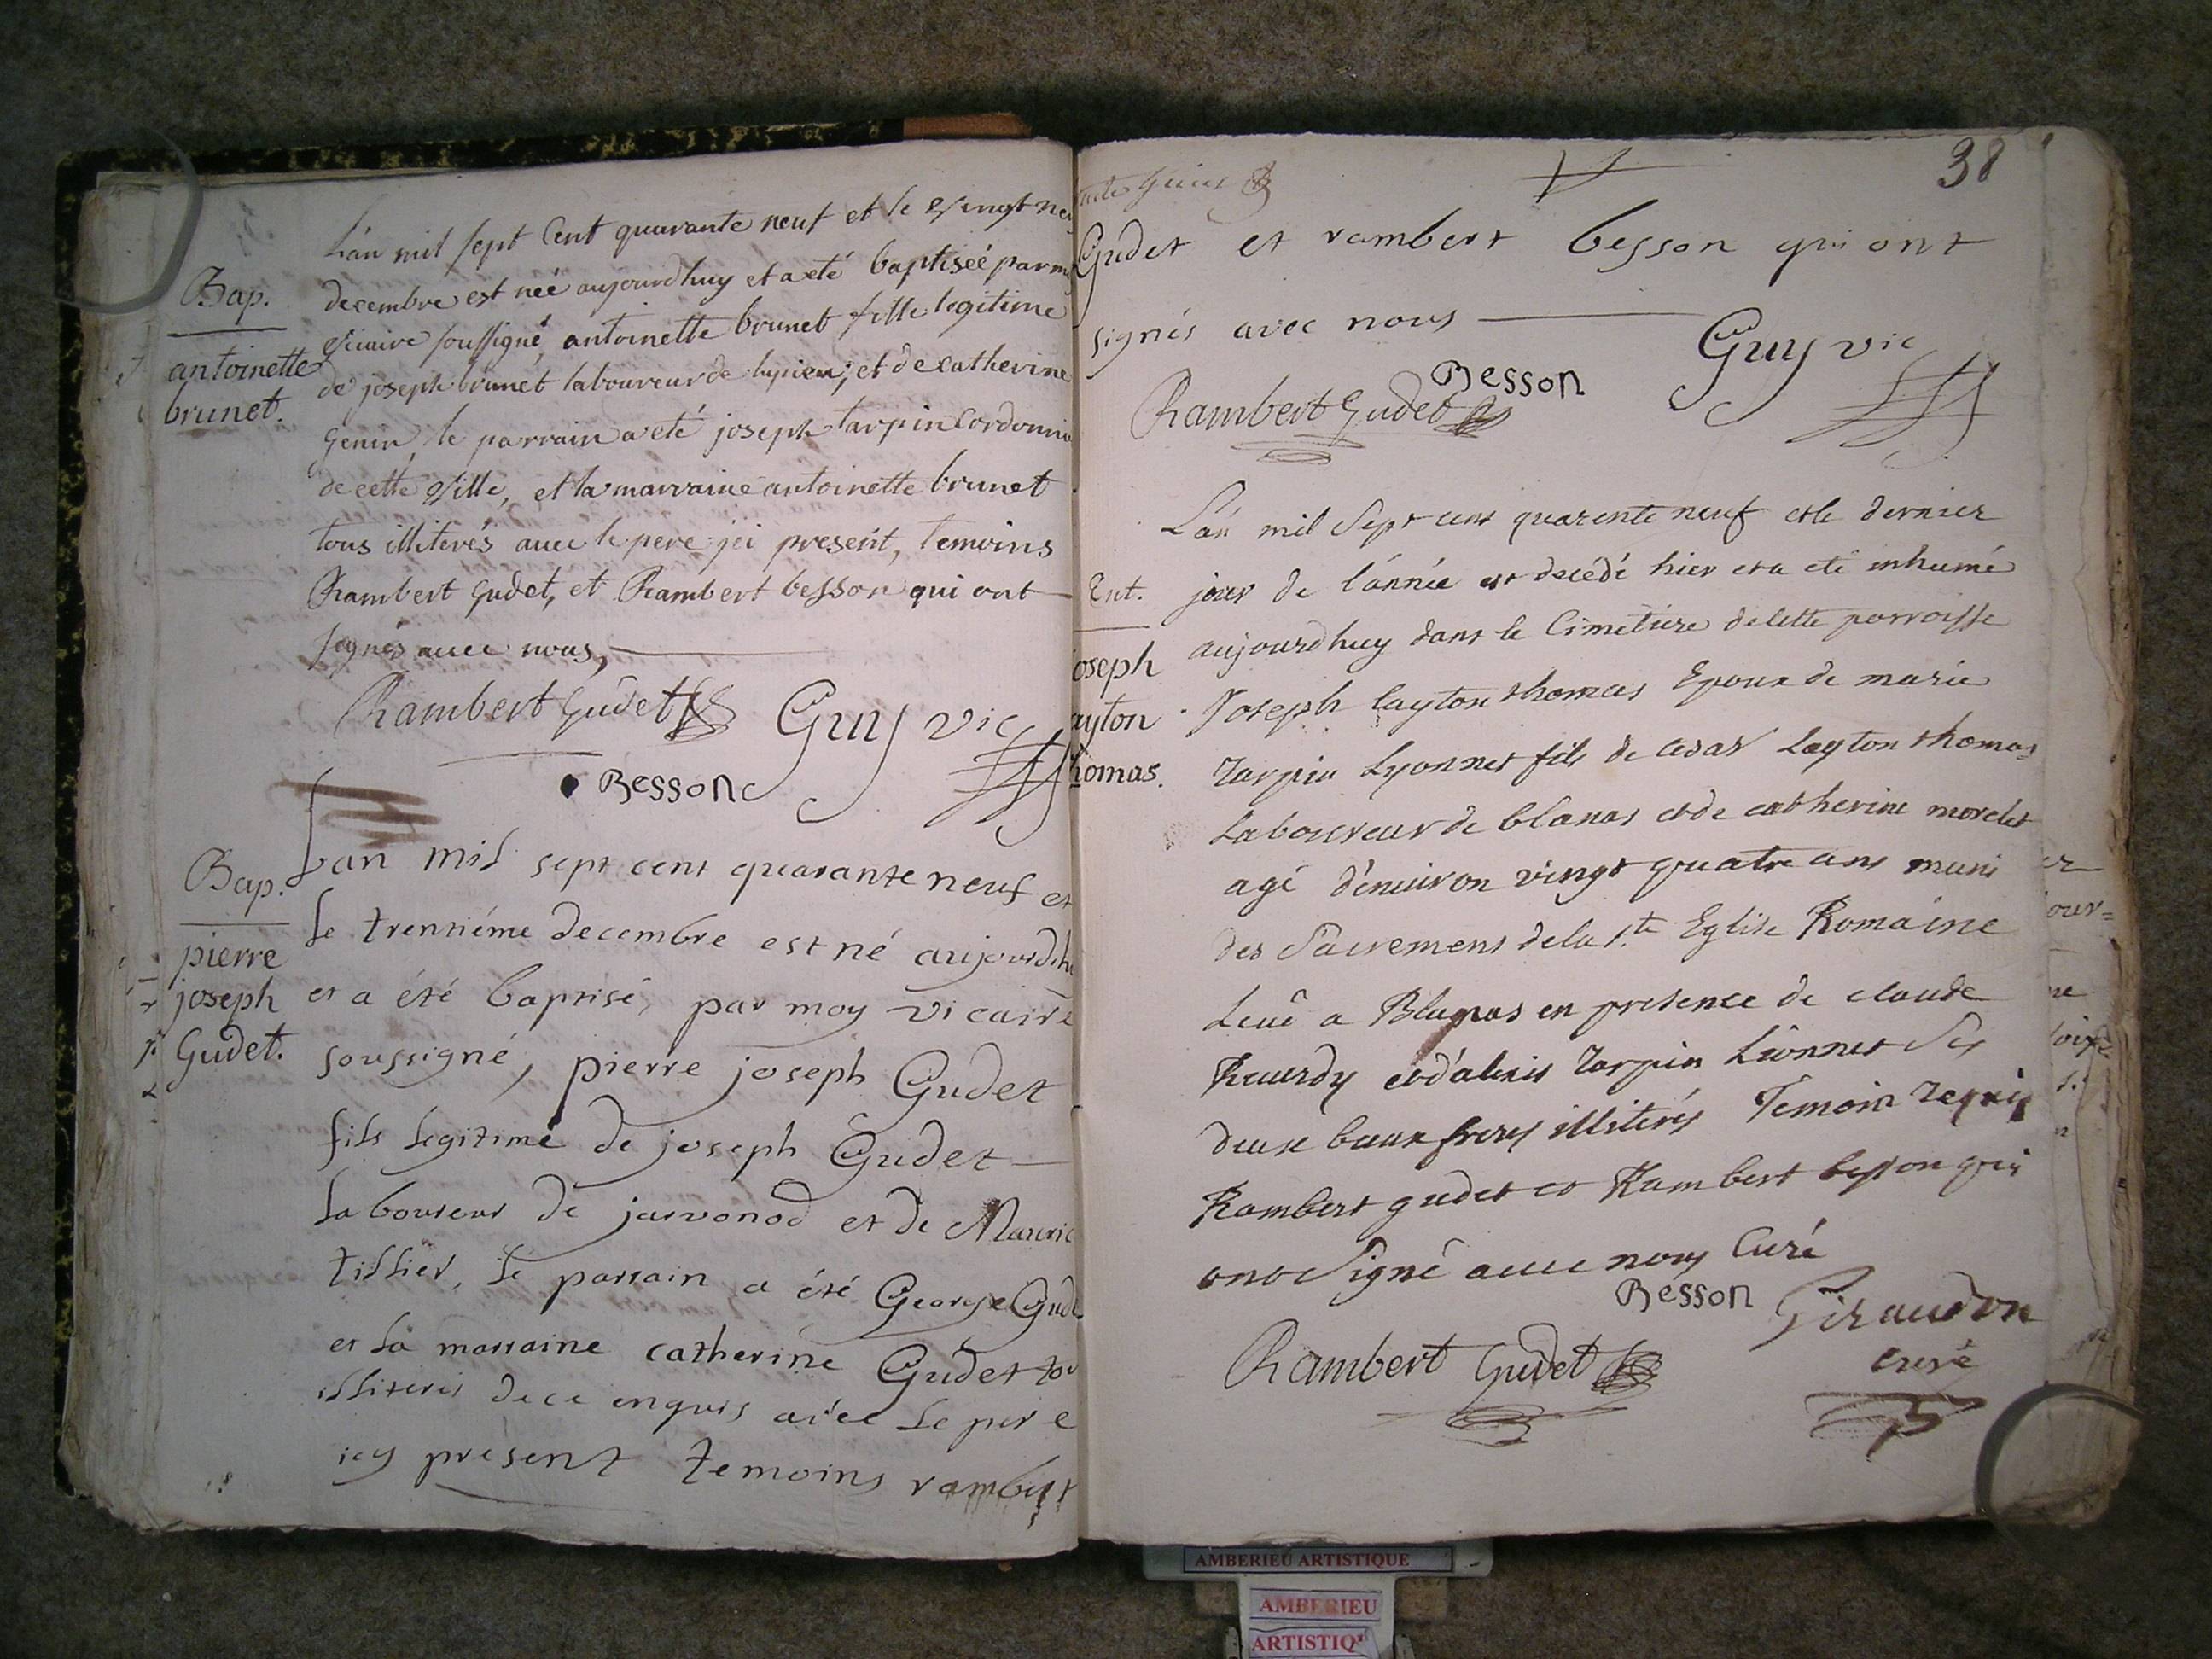 L'an mil sept Cent quarante neuf et le vingt neu
decembre est néé aujourdhuy et a eté baptiseé par m
Bap.
vicaire soussigné, antoinette brunet fille legitime
antoinette
brunet.
de joseph brunet laboureur de et de catherine
genin, le parrain a eté joseph tarpin Cordonnie
de cette ville, et la marraine antoinette brunet
tous illiterés avec le pere jci present, temoins
Rambert gudet, et Rambert besson qui ont
signés avec nous,
Rambert Gudet Guy vic
Besson
Bap.
pierre
joseph
Gudet.
Lan mil sept cent quarante neuf et
Le trentiéme decembre est né aujourdhu
et a été baptisé, par moy vicaire
soussigné, pierre joseph Gudet
fils legitime de joseph Gudet
Laboureur de jarvonod et de
tillier, Le parrain a été George Gude
et La marraine catherine Gudet tou
illiterés de ce enquis avec Le pere
icy présent temoins rambert
38
Gudet et rambert besson qui ont
signés avec nous
Besson Guy vic
Rambert Gudet
L'an mil Sept cent quarente neuf et le dernier
jour de l'année est decédé hier et a eté inhumé
Ent.
oseph
ayton
homas.
aujourdhuy dans le Cimetiere de Cette parroisse
Joseph Layton thomas Epoux de marie
tarpin Lyonnet fils de Cesar Layton thomas
Laboureur de blanas et de catherine morelet
agé d'environ vingt quatre ans muni
des Sacremens de la s.te Eglise Romaine
Leué a Blanas en presence de claude
et d'alexis tarpin Lionnet Ses
deux beaux freres illiterés Temoin requis
Rambert gudet et Rambert besson qui
ont Signé avec nous Curé
Besson Giraudon
curé
Rambert Gudet
AMBERIEU ARTISTIQUE
AMBERIEU
ARTISTIQ